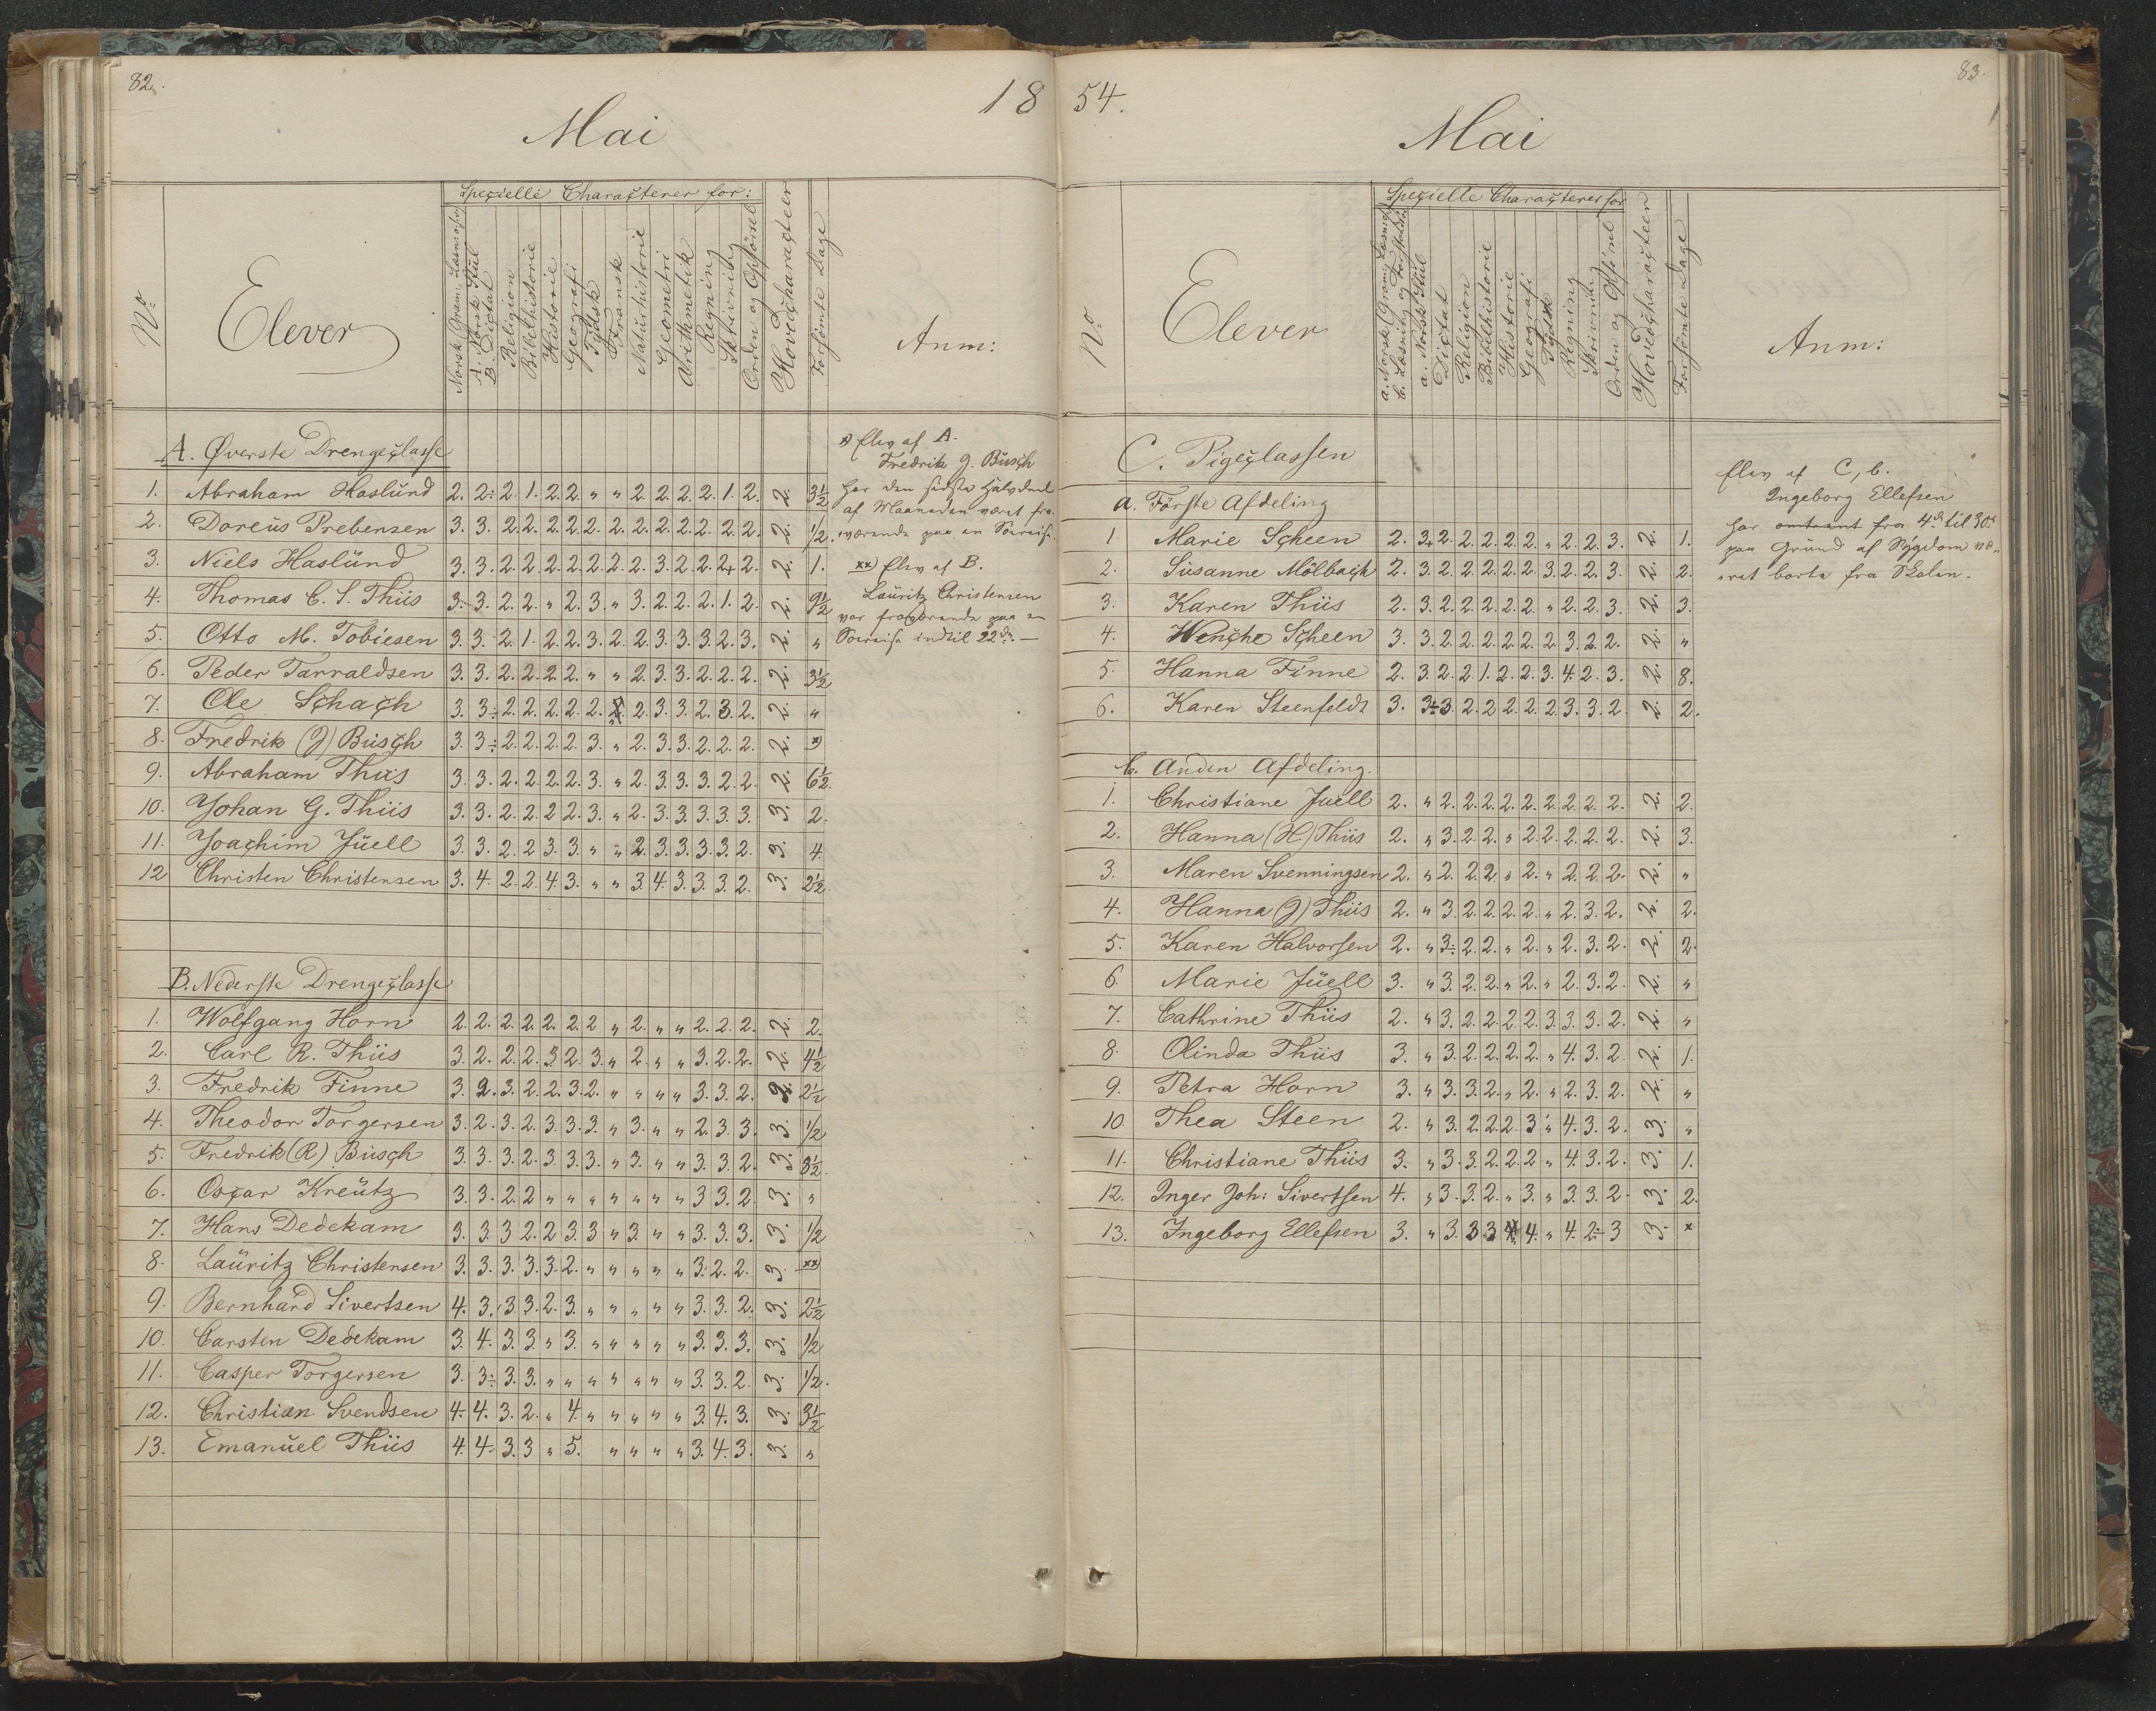 82.
18
Mai
Specielle Characterer for:
No
Elever
Norsk Gram: Læsning
A. Norsk Stiil
B. Dictat
Religion
Bibelhistorie
Historie
Geografi
Tydsk
Fransk
Naturhistorie
Geometri
Arithmetik
Regning
Skrivning
Orden og Opförsel
Hovedcharacteer
Forsömte Dage
Anm:
A. Øverste Drengeclasse
1. Abraham Haslund 2. 2÷ 2. 1. 2. 2. " " 2. 2. 2. 2. 1. 2. 2. 3½
2. Doreus Prebensen 3. 3. 2. 2. 2. 2. 2. 2. 2. 2. 2. 2. 2. 2. 2. ½.
3. Niels Haslund 3. 3. 2. 2. 2. 2. 2. 2. 2. 3. 2. 2. 2+ 2. 2. 1.
4. Thomas C. S. Thiis 3. 3. 2. 2. " 2. 3. " 3. 2. 2. 2. 1. 2. 2. 9½
5. Otto M. Tobiesen 3. 3. 2. 1. 2. 2. 3. 2. 2. 3. 3. 3. 2. 3. 2. "
6. Peder Tarraldsen 3. 3. 2. 2. 2. 2. " " 2. 3. 3. 2. 2. 2. 2. 3½
7. Ole Schach 3. 3÷ 2. 2. 2. 2. 2. " 2. 3. 3. 2. 3. 2. 2. "
8. Fredrik (J) Busch 3. 3÷ 2. 2. 2. 2. 3. " 2. 3. 3. 2. 2. 2. 2. x)
9. Abraham Thiis 3. 3. 2. 2. 2. 2. 3. " 2. 3. 3. 3. 2. 2. 2. 6½.
10. Johan G. Thiis 3. 3. 2. 2. 2. 2. 3. " 2. 3. 3. 3. 3. 3. 3. 2.
11. Joachim Juell 3. 3. 2. 2. 3. 3. " " 2. 3. 3. 3. 3. 2. 3. 4.
12 Christen Christensen 3. 4. 2. 2. 4. 3. " " 3. 4. 3. 3. 3. 2. 3. 2½.
x) Elev af A.
Fredrik J. Busch
har den sidste Halvdeel
af Maaneden været fra-
værende paa en Søreise.
xx) Elev af B.
Lauritz Christensen
var fraværende paa en
Søreise indtil 22de. —
B. Nederste Drengeclasse
1. Wolfgang Horn 2. 2. 2. 2. 2. 2. 2 " 2. " " 2. 2. 2. 2. 2.
2. Carl R. Thiis 3. 2. 2. 2. 3. 2. 3. " 2. " " 3. 2. 2. 2. 4½
3. Fredrik Finne 3. 2. 3. 2. 2. 3. 2. " " " " 3. 3. 2. 2. 2½
4. Theodor Torgersen 3. 2. 3. 2. 3. 3. 3. " 3. " " 2. 3. 3. 3. ½
5. Fredrik (R) Busch 3. 3. 3. 2. 3. 3. 3. " 3. " " 3. 3. 2. 3. 8½.
6. Oscar Kreutz 3. 3. 2. 2 " " " " " " " 3. 3. 2. 3. "
7. Hans Dedekam 3. 3. 3 2. 2 3. 3 " 3. " " 3. 3. 3. 3. ½
8. Lauritz Christensen 3. 3. 3. 3. 3. 2. " " " " " 3. 2. 2. 3. xx)
9. Bernhard Sivertsen 4. 3. 3. 3. 2. 3. " " " " " 3. 3. 2. 3. 2½
10. Carsten Dedekam 3. 4. 3. 3. " 3. " " " " " 3. 3. 3. 3. ½
11. Casper Torgersen 3. 3÷ 3. 3. " " " " " " " 3. 3. 2. 3. ½.
12. Christian Svendsen 4. 4. 3. 2. " 4. " " " " " 3. 4. 3. 3. 3½
13. Emanuel Thiis 4. 4. 3. 3 " 5. " " " " 3. 4. 3. 3. "
83.
54.
Mai
Specielle Characterer for
No
Elever
a. Norsk Gram: Læsning
b. Læsning og Forstaaelse
a. Norsk Stiil
Dictat
Religion
Bibelhistorie
Historie
Geografi
Tydsk
Regning
Skrivning
Orden og Opförsel
Hovedcharacteer
Forsömte Dage
Anm:
C. Pigeclassen
a. Förste Afdeling
1. Marie Scheen 2. 3+ 2. 2. 2. 2. 2. " 2. 2. 3. 2. 1.
2. Susanne Mölbach 2. 3. 2. 2. 2. 2. 2. 3. 2. 2. 3. 2. 2.
3. Karen Thiis 2. 3. 2. 2. 2. 2. 2. " 2. 2. 3. 2. 3.
4. Wenche Scheen 3. 3. 2. 2. 2. 2. 2. 2. 3. 2. 2. 2. "
5. Hanna Finne 2. 3. 2. 2. 1. 2. 2. 3. 4. 2. 3. 2. 8.
6. Karen Steenfeldt 3. 3÷ 3. 2. 2. 2. 2. 2. 3. 3. 2. 2. 2.
Elev af C, b.
Ingeborg Ellefsen
har omtrent fra 4de til 30te
paa Grund af Sygdom væ-
ret borte fra Skolen.
b. Anden Afdeling.
1. Christiane Juell 2. " 2. 2. 2. 2. 2. 2. 2. 2. 2. 2. 2.
2. Hanna (H) Thiis 2. " 3. 2. 2. " 2. 2. 2. 2. 2. 2. 3.
3. Maren Svenningsen 2. " 2. 2. 2. " 2. " 2. 2. 2. 2. "
4. Hanna (J) Thiis 2. " 3. 2. 2. 2. 2. " 2. 3. 2. 2. 2.
5. Karen Halvorsen 2. " 3÷ 2. 2. " 2. " 2. 3. 2. 2. 2.
6. Marie Juell 3. " 3. 2. 2. " 2. " 2. 3. 2. 2. "
7. Cathrine Thiis 2. " 3. 2. 2. 2. 2. 3. 3. 3. 2. 2. "
8. Olinda Thiis 3. " 3. 2. 2. 2. 2. " 4. 3. 2. 2. 1.
9. Petra Horn 3. " 3. 3. 2. " 2. " 2. 3. 2. 2. "
10. Thea Steen 2. " 3. 2. 2. 2. 3 " 4. 3. 2. 3. "
11. Christiane Thiis 3. " 3. 3. 2. 2. 2 " 4. 3. 2. 3. 1.
12. Inger Joh: Sivertsen 4. " 3. 3. 2. " 3. " 3. 3. 2. 3. 2.
13. Ingeborg Ellefsen 3. " 3. 3. 3 4. " 4. 2÷ 3 3. x